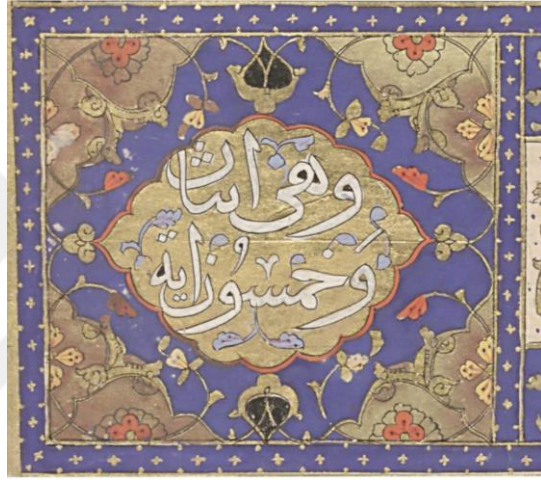 وهى اثنان
وخمسون اية